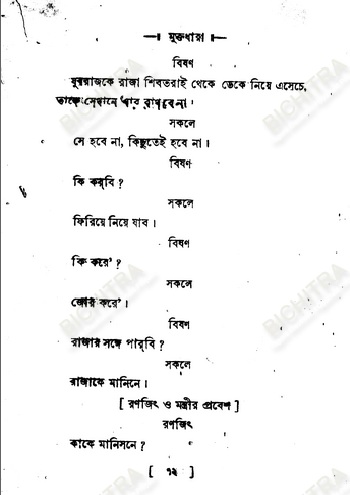 মুক্তধারা
বিষণ
যুবরাজকে রাজা শিবতরাই থেকে ডেকে নিয়ে এসেচে,
তাকে সেখানে আর রাখবে না।
সকলে
সে হবে না, কিছুতেই হবে না॥
বিষণ
কি করবি?
সকলে
ফিরিয়ে নিয়ে যাব।
বিষণ
কি করে'?
সকলে
জোর করে'।
বিষণ
রাজার সঙ্গে পারবি?
সকলে
রাজাকে মানিনে।
[ রণজিৎ ও মন্ত্রীর প্রবেশ ]
রণজিৎ
কাকে মানিসনে?
[ ৭২ ]
BICHITRA
BICHITRA
BICHITRA
BICHITRA